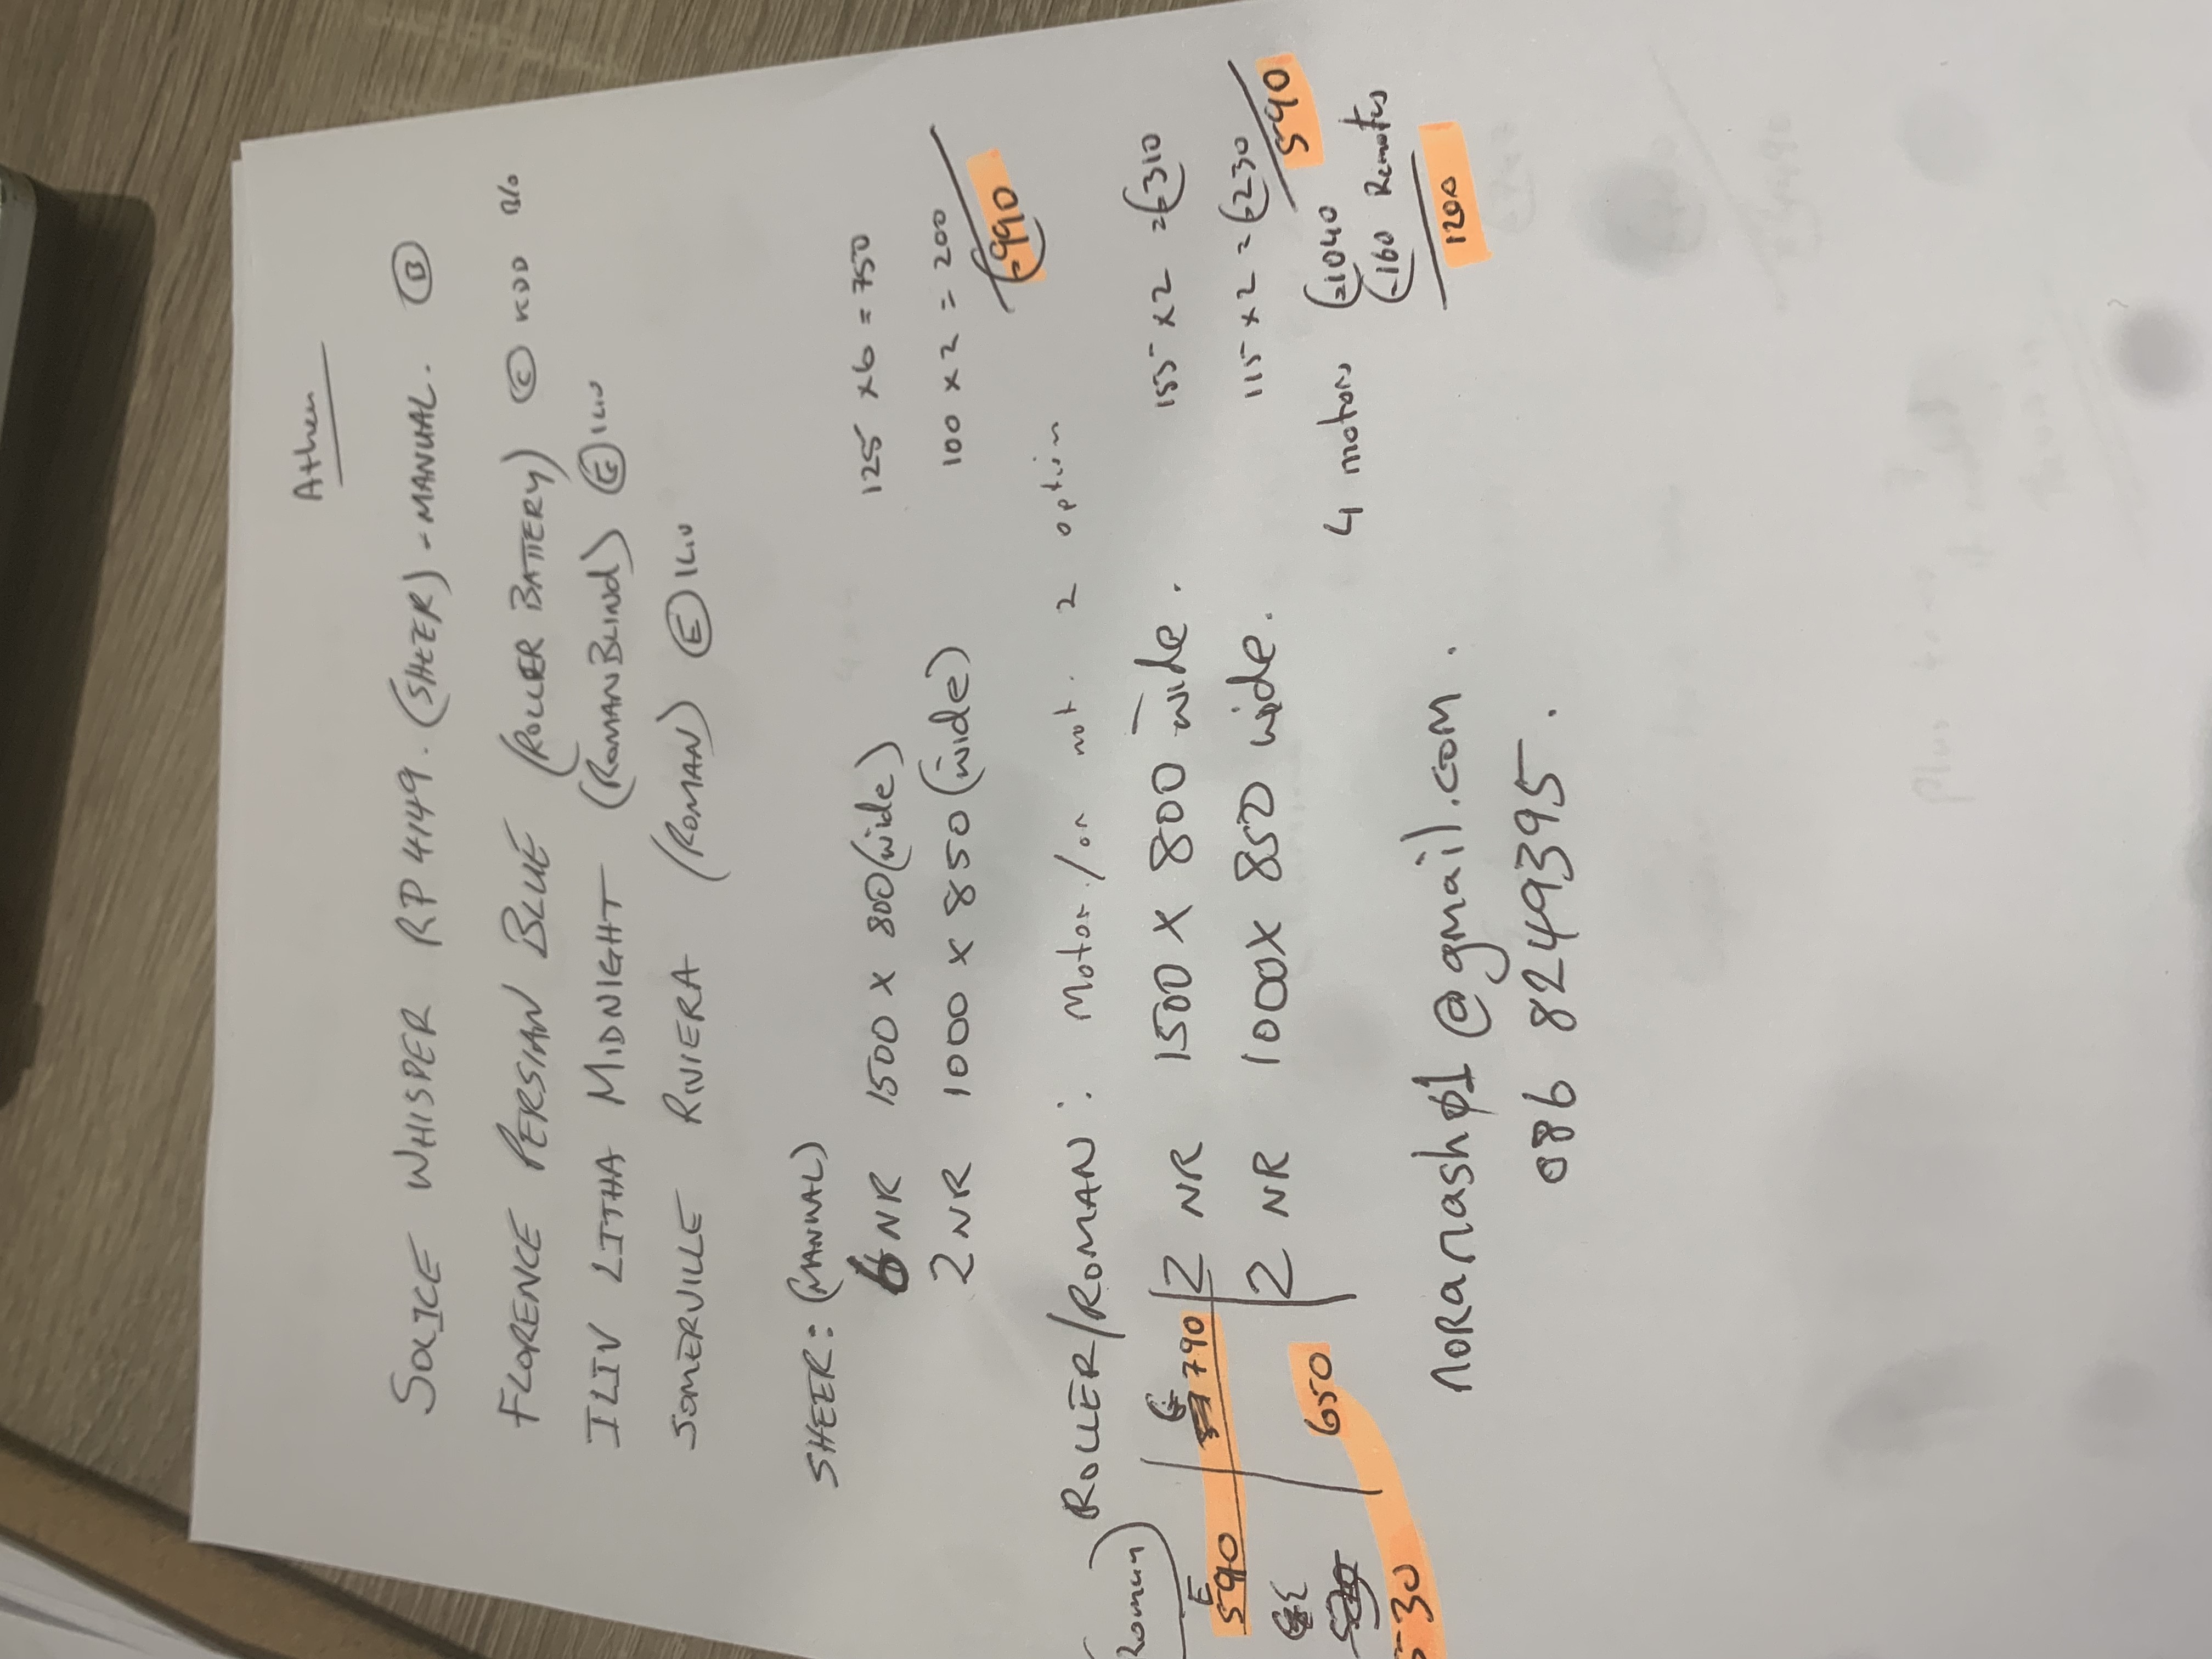 Athen
SOLICE WHISPER RP 4149. (SHEER) - MANUAL. (B)
FLORENCE PERSIAN BLUE (ROLLER BATTERY) (C) B/o
ILIV LITHA MIDNIGHT (ROMAN BLIND) (G) ILIV
SOMERVILLE RIVIERA (ROMAN) (E) ILIV
SHEER: (MANUAL)
6 NR 1500 x 800 (wide) 125 x 6 = 750
2 NR 1000 x 850 (wide) 100 x 2 = 200
€990
(Roman) ROLLER/ROMAN: Motor/or not. 2 option
E 590 G 790 2 NR 1500 x 800 wide. 155 x 2 = €310
650 2 NR 1000 x 850 wide. 115 x 2 = €230
590
530 4 motors €1040
€160 Remotes
1200
noranash01@gmail.com.
086 8249395.